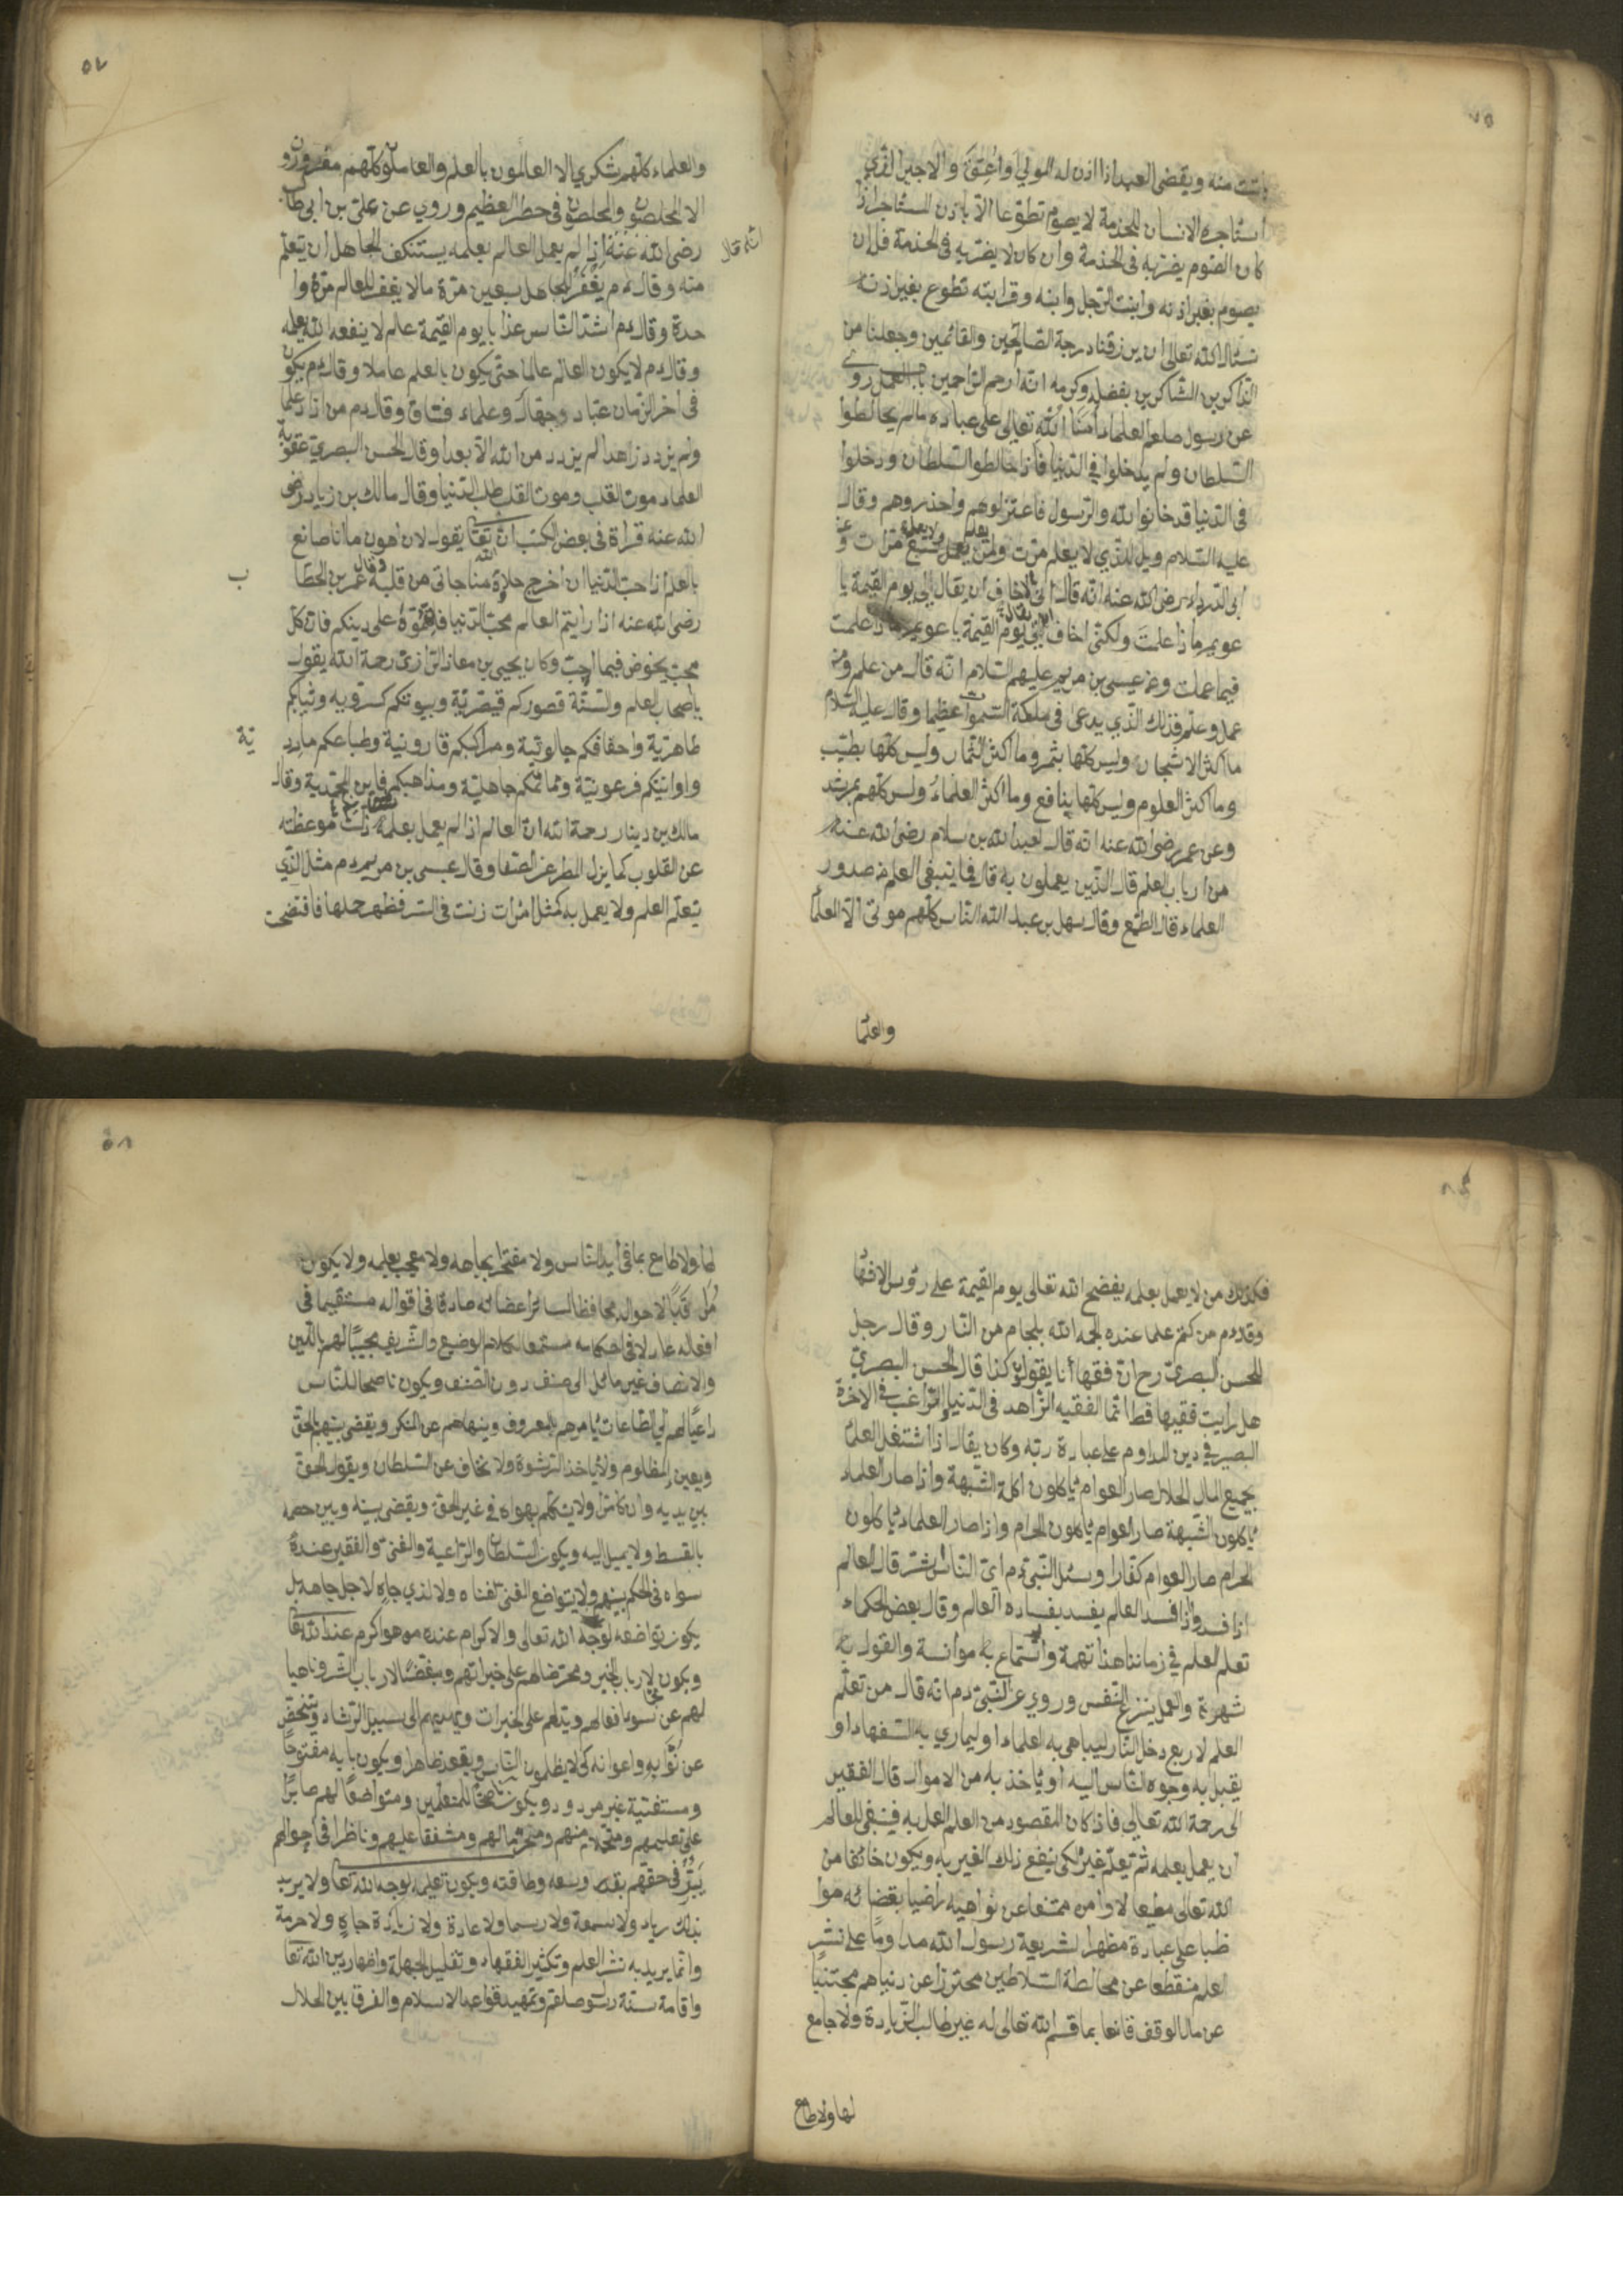 باتت منه ويقضى العبد اذا اذن له المولى او اعتق والاجير الذي
استاجره الانسان للخدمة لا يصوم تطوعا الا باذن المستاجر اذا
كان الصوم يضر به فى الخدمة وان كان لا يضر به فى الخدمة فله ان
يصوم بغير اذنه وابنت الرجل وابنه وقرابته تطوع بغير اذنه
نسئال الله تعالى ان يرزقنا درجة الصالحين والقائمين وجعلنا من
الذاكرين الشاكرين بفضله وكرمه انه ارحم الراحمين باب العمل روى
عن رسول صلعم العلماء امناء الله تعالى على عباده مالم يخالطوا
السلطان ولم يدخلوا في الدنيا فاذا خالطوا السلطان ودخلوا
فى الدنيا قد خانوا الله والرسول فاعتزلوهم واحذروهم وقال
عليه السلام ويل للذي لا يعلم مرت ولمن يعلم ولا يعمل سبع مرات وعن
ابى الدرداء رضى الله عنه انه قال انى لا اخاف ان يقال لى يوم القيمة يا
عويمر ماذا علمت ولكنى اخاف ان يقال لى يوم القيمة يا عويمر ماذا عملت
فيما علمت وعن عيسى بن مريم عليهم السلام انه قال من علم و
عمل وعلم فذلك الذي يدعى فى ملكة السموات عظيما وقال عليه السلام
ما اكثر الاشجار وليس كلها بثمر وما اكثر الثمار وليس كلها بطيب
وما اكثر العلوم وليس كلها بنافع وما اكثر العلماء وليس كلهم بمرشد
وعن عمر رضى الله عنه انه قال لعبد الله بن سلام رضى الله عنه
من ارباب العلم قال الذين يعملون به قال فما ينبغى العلم من صدور
العلماء قال الطمع وقال سهل بن عبد الله الناس كلهم موتى الا العلما
والعلما
٥٧
والعلماء كلهم سكري الا العالمون بالعلم والعاملون كلهم مغرورون
الا المخلصون والمخلصون فى خطر العظيم وروي عن على بن ابى طالب
رضى الله عنه انه قال اذا لم يعمل العالم بعلمه يستنكف الجاهل ان يتعلم
منه وقال دم يغفر للجاهل سبعين مرة مالا يغفر للعالم مرة وا
حدة وقال دم اشد الناس عذابا يوم القيمة عالم لا ينفعه الله بعلمه
وقال دم لا يكون العالم عالما حتى يكون بالعلم عاملا وقال دم يكون
فى اخر الزمان عباد وجهال وعلماء فساق وقال دم من ازداد علما
ولم يزدد زاهدا لم يزدد من الله الا بعدا وقال الحسن البصري عقوبة
العلماء موت القلب وموت القلب طلب الدنيا وقال مالك بن زياد رضى
الله عنه قراة فى بعض الكتب ان الله تعا يقول لان اهون ما انا صانع
بالعلم اذا حب الدنيا ان اخرج حلاوة مناجاتى من قلبه وقال عمر بن الخطا
ب
رضى الله عنه اذا رايتم العالم محب الدنيا فاتهموه على دينكم فان كل
محب يخوض فيما احب وكان يحيى بن معاذ الرازى رحمة الله يقول
يا اصحاب العلم والسنة قصوركم قيصرية وبيوتكم كسرويه وثيابكم
طاهرية واخفافكم جالوتية ومراكبكم قارونية وطباعكم مارد
ية
واوانيكم فرعونية ومماتكم جاهلية ومذاهبكم فاين المحمدية وقال
مالك بن دينار رحمة الله ان العالم اذا لم يعمل بعلمه زلت موعظته
عن القلوب كما يزل المطر عن الصفا وقال عيسى بن مريم دم مثل الذي
يتعلم العلم ولا يعمل به كمثل امرات زنت فى السر فظهر حملها فافتضحت
فكذلك من لا يعمل بعلمه يفضح الله تعالى يوم القيمة على رؤس الاشهاد
وقال دم من كتم علما عنده لجمه الله بلجام من النار وقال رجل
للحسن البصرى رح ان فقهاءنا يقولون كذا قال الحسن البصري
هل رايت فقيها قط انما الفقيه الزاهد فى الدنيا الراغب فى الاخرة
البصير في دين المداوم على عبادة ربه وكان يقال اذا اشتغل العلما
بجميع المال الحلال صار العوام يأكلون اكلة الشبهة واذا صار العلماء
يأكلون الشبهة صار العوام يأكلون الحرام واذا صار العلماء يأكلون
الحرام صار العوام كفارا وسئل النبى دم اى الناس شر قال العالم
اذا فسد واذا فسد العالم يفسد بفساده العالم وقال بعض الحكماء
تعلم العلم في زماننا هذا تهمة واستماع به موانسة والقول به
شهرة والعمل ينزع النفس وروي عن النبى دم انه قال من تعلم
العلم لاربع دخل النار ليباهى به العلماء او ليماري به السفهاء او
يقبل به وجوه الناس اليه او يأخذ به من الاموال قال الفقير
الى رحمة الله تعالى فاذا كان المقصود من العلم العمل به فينبغى للعالم
ان يعمل بعلمه ثم يتعلم غيره لكى ينفع ذلك الغير به ويكون خائفا من
الله تعالى مطيعا لاوامره ممتنعا عن نواهيه راضيا بقضائه موا
ظبا على عبادة مظهرا لشريعة رسول الله مداوما على نشر
العلم منقطعا عن مخالطة السلاطين محترزا عن دنياهم مجتنبا
عن مال الوقف قانعا بما قسم الله تعالى له غير طالب الزيادة ولا جامع
لها ولا طامع
٥٨
لها ولا طامع بما فى ايد الناس ولا مفتخر بجاهه ولا معجب بعلمه ولا يكون
الاحوال محافظا لسائر اعضائه صادقا فى اقواله مستقيما فى
افعاله عادلا فى احكامه مستمعا لكلام الوضيع والشريف مجيبا لهم بالدين
والانصاف غير مائل الى صنف دون الصنف ويكون ناصحا للناس
داعيا لهم الى الطاعات يأمرهم بالمعروف وينهاهم عن المنكر ويقضى بينهم بالحق
ويعين المظلوم ولا يأخذ الرشوة ولا يخاف عن السلطان ويقول الحق
بين يديه وان كان مرا ولا يتكلم بهواه فى غير الحق ويقضى بينه وبين خصمه
بالقسط ولا يميل اليه ويكون السلطان والراعية والغنى والفقير عنده
سواه فى الحكم بينهم ولا يتواضع الغنى لغناه ولا لذي جاه لاجل جاهه بل
يكون تواضعه لوجه الله تعالى والاكرام عنده من هو اكرم عند الله تعا
ويكون لارباب الخير ومحرضا لهم على خيراتهم ومبغضا لارباب الشر وناهيا
لهم عن سوء افعالهم ويدلهم على الخيرات ويهديهم الى سبيل الرشاد ويتفحص
عن نوابه واعوانه كى لا يظلمون الناس ويقعد ظاهرا ويكون بابه مفتوحا
ومستفتيه غير مردود ويكون ناصحا للمتعلمين ومتواضعا لهم صابرا
على تعليمهم ومتحملا منهم ومشفقا عليهم وناظرا فى احوالهم
فى حقهم بقدر وسعه وطاقته ويكون تعليمه لوجه الله تعا ولا يريد
بذلك رياء ولا سمعة ولا رسما ولا عادة ولا زيادة جاه ولا حرمة
وانما يريد به نشر العلم وتكثير الفقهاء وتقليل الجهلة واظهار دين الله تعا
واقامة سنة رسول صلعم وتمهيد قواعد الاسلام والفرق بين الحلال